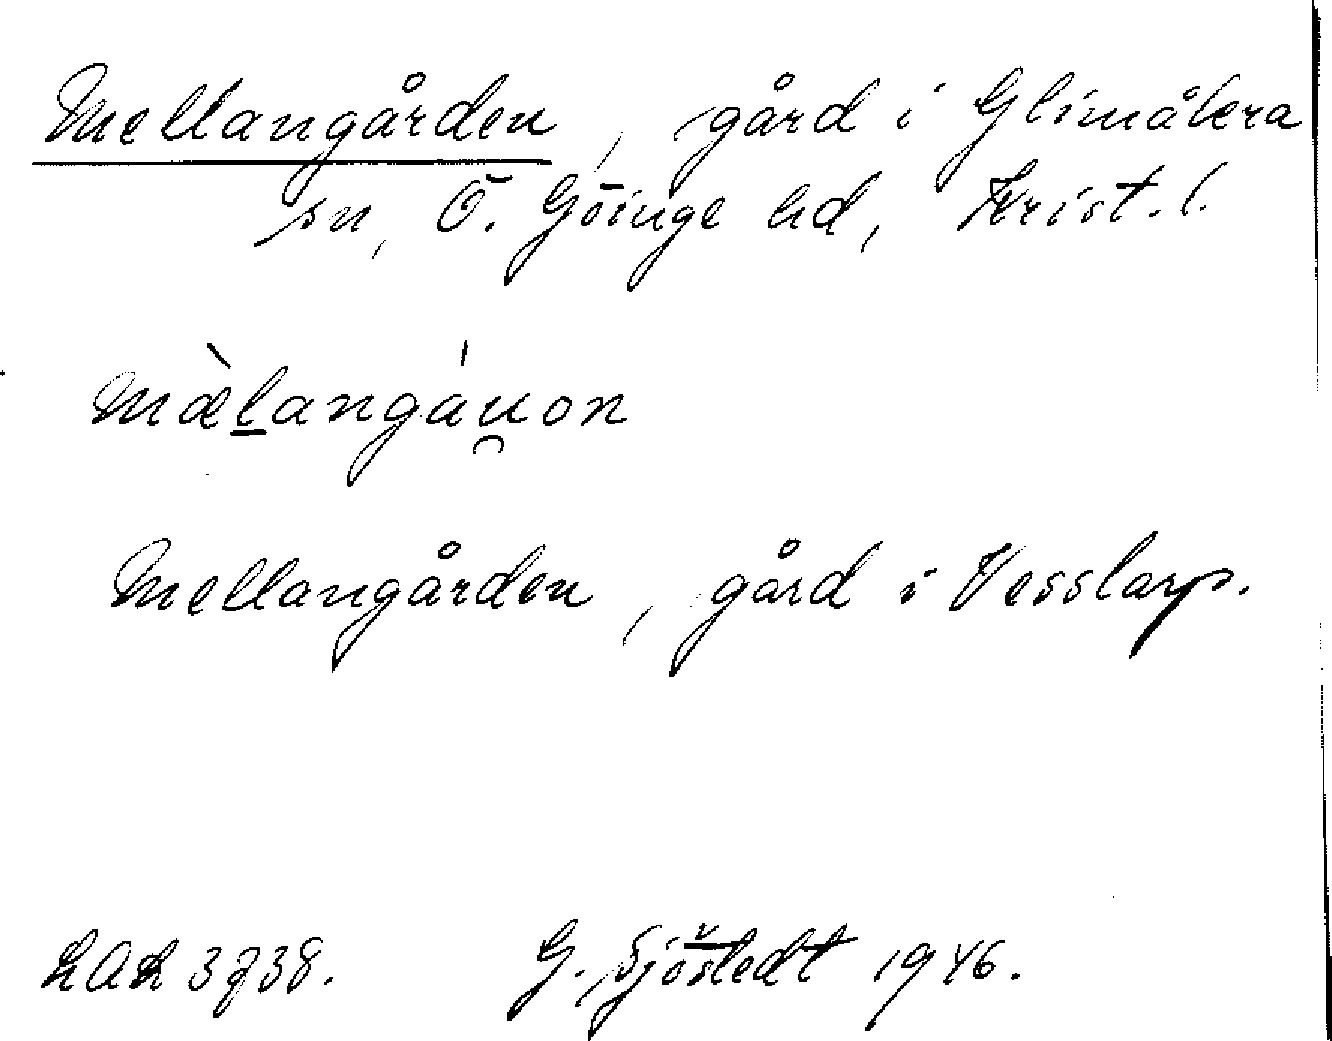 Mellangården, gård i Glimåkra
sn, Ö. Göinge hd, Krist. l.
mæ̀l̲angáu̯on
Mellangården, gård i Vesslarp.
LAL 3738. G. Sjöstedt 1946.